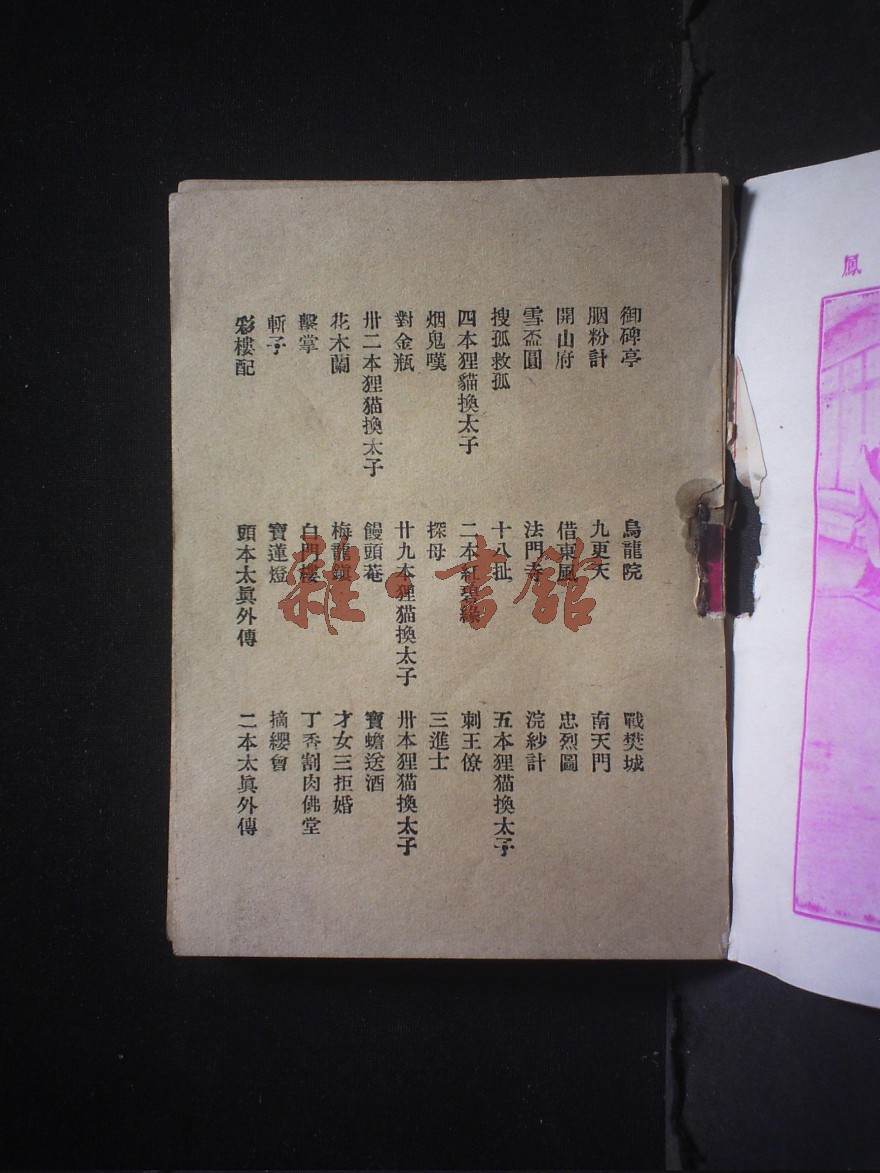 御碑亭 烏龍院 戰樊城
胭粉計 九更天 南天門
開山府 借東風 忠烈圖
雪盃圓 法門寺 浣紗計
搜孤救孤 十八扯 五本狸猫換太子
四本狸貓換太子 二本紅碧緣 刺王僚
烟鬼嘆 探母 三進士
對金瓶 廿九本狸猫換太子 卅本狸猫換太子
卅二本狸猫換太子 饅頭菴 寶蟾送酒
花木蘭 梅龍鎮 才女三拒婚
擊掌 白門樓 丁香割肉佛堂
斬子 寶蓮燈 摘纓會
彩樓配 頭本太眞外傳 二本太眞外傳
雜·書館
鳳